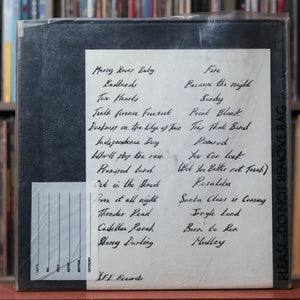 Merry Xmas Baby
Badlands
Two Hearts
Tenth Avenue Freezeout
Darkness on the Edge of Town
Independence Day
Who'll stop the rain
Promised Land
Out in the Street
Prove it all night
Thunder Road
Cadillac Ranch
Cherry Darling
Fire
Because the night
Sandy
Point Blank
Ties That Bind
Ramrod
You Can Look
(But You Better not Touch)
Rosalita
Santa Claus is Coming
Jungle Land
Born to Run
Medley
Records
PLEASE DO NOT REMOVE BAG